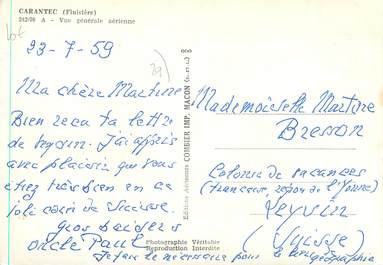 CARANTEC (Finistère)
242/98 A - Vue générale aérienne
23-7-59
Ma chère Martine
Bien reçu ta lettre
de Leysin. J'ai appris
avec plaisir que vous
étiez très bien en ce
joli coin de Suisse.
Gros baisers
oncle Paul
Je fais le nécessaire pour le livre
géographie
Photographie Véritable
Reproduction Interdite
Editions Aériennes COMBIER IMP. MACON
Mademoiselle Martine
Bresson
Colonie de vacances
(Française, région de l'Yonne)
Leysin
(Suisse)